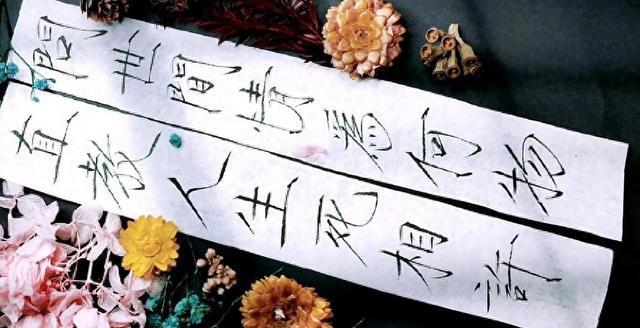 問世間情為何物
直教人生死相許